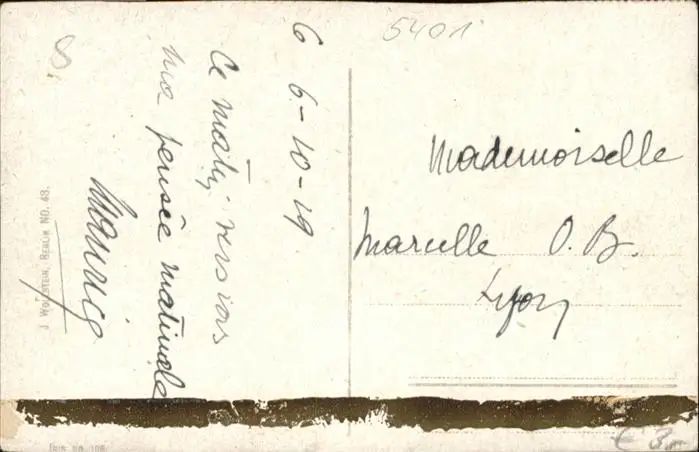 5401
8
6 6-10-19
Ce matin vers vos
ma pensée matinale
Maurice
Mademoiselle
Marcelle O. B.
Lyon
J. WOLLSTEIN, BERLIN NO. 43.
€ 3,-